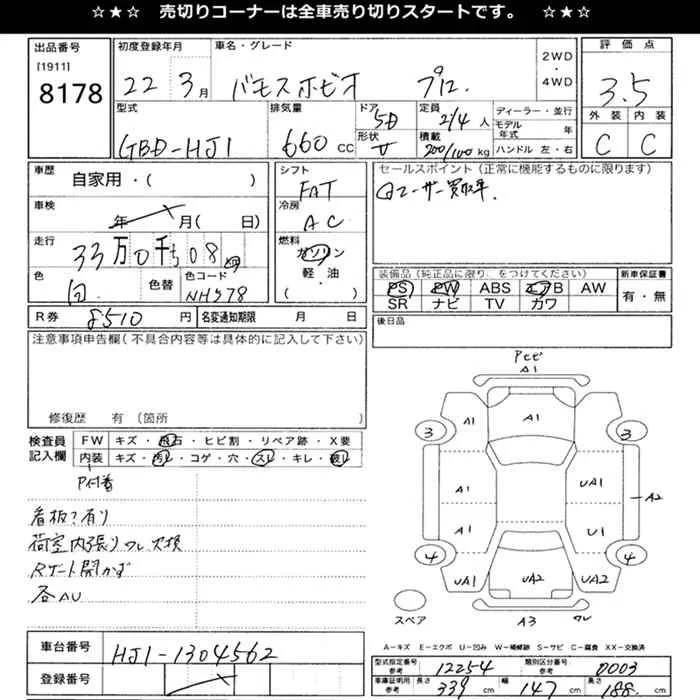 ☆★☆ 売切りコーナーは全車売り切りスタートです。 ☆★☆
出品番号
[1911]
8178
初度登録年月
22 3月
車名・グレード
バモスホビオ プロ.
2WD
・
4WD
評価点
3.5
外装 内装
C C
型式
GBD-HJ1
排気量
660 CC
ドア
5D
形状
V
定員
2/4 人
積載
200/100 kg
ディーラー・並行
モデル年式 年
ハンドル 左・右
車歴
自家用・( )
車検
年 月( 日)
走行
33万0千508
色
白.
色替
色コード
NH578
シフト
FAT
冷房
AC
燃料
ガソリン
軽・油
( )
セールスポイント(正常に機能するものに限ります)
装備品(純正品に限り、をつけてください)
PS PW ABS エアB AW
SR ナビ TV カワ
新車保証書
有・無
R券 8510 円
名変通知期限 月 日
後日品
注意事項申告欄(不具合内容等は具体的に記入して下さい)
修復歴 有 (箇所
検査員
記入欄
FW キズ・飛石・ヒビ割・リペア跡・X要
内装 キズ・汚レ・コゲ・穴・スレ・キレ・破レ
看板?有り
荷室内張りワレ欠損
Rゲート開かず
各AU
A1
A1
3 A1 A1 3
A1 UA1 A2
A1 U1
4 UA1 UA2 UA2 4
スペア
A3 ワレ
A-キズ E-エクボ U-凹み W-補修跡 S-サビ C-腐食 XX-交換済
車台番号
HJ1-1304562
登録番号
型式指定番号
参考
12254
類別区分番号
参考
0003
車庫証明用
参考
長さ
339 cm
幅
147 cm
高さ
188 cm